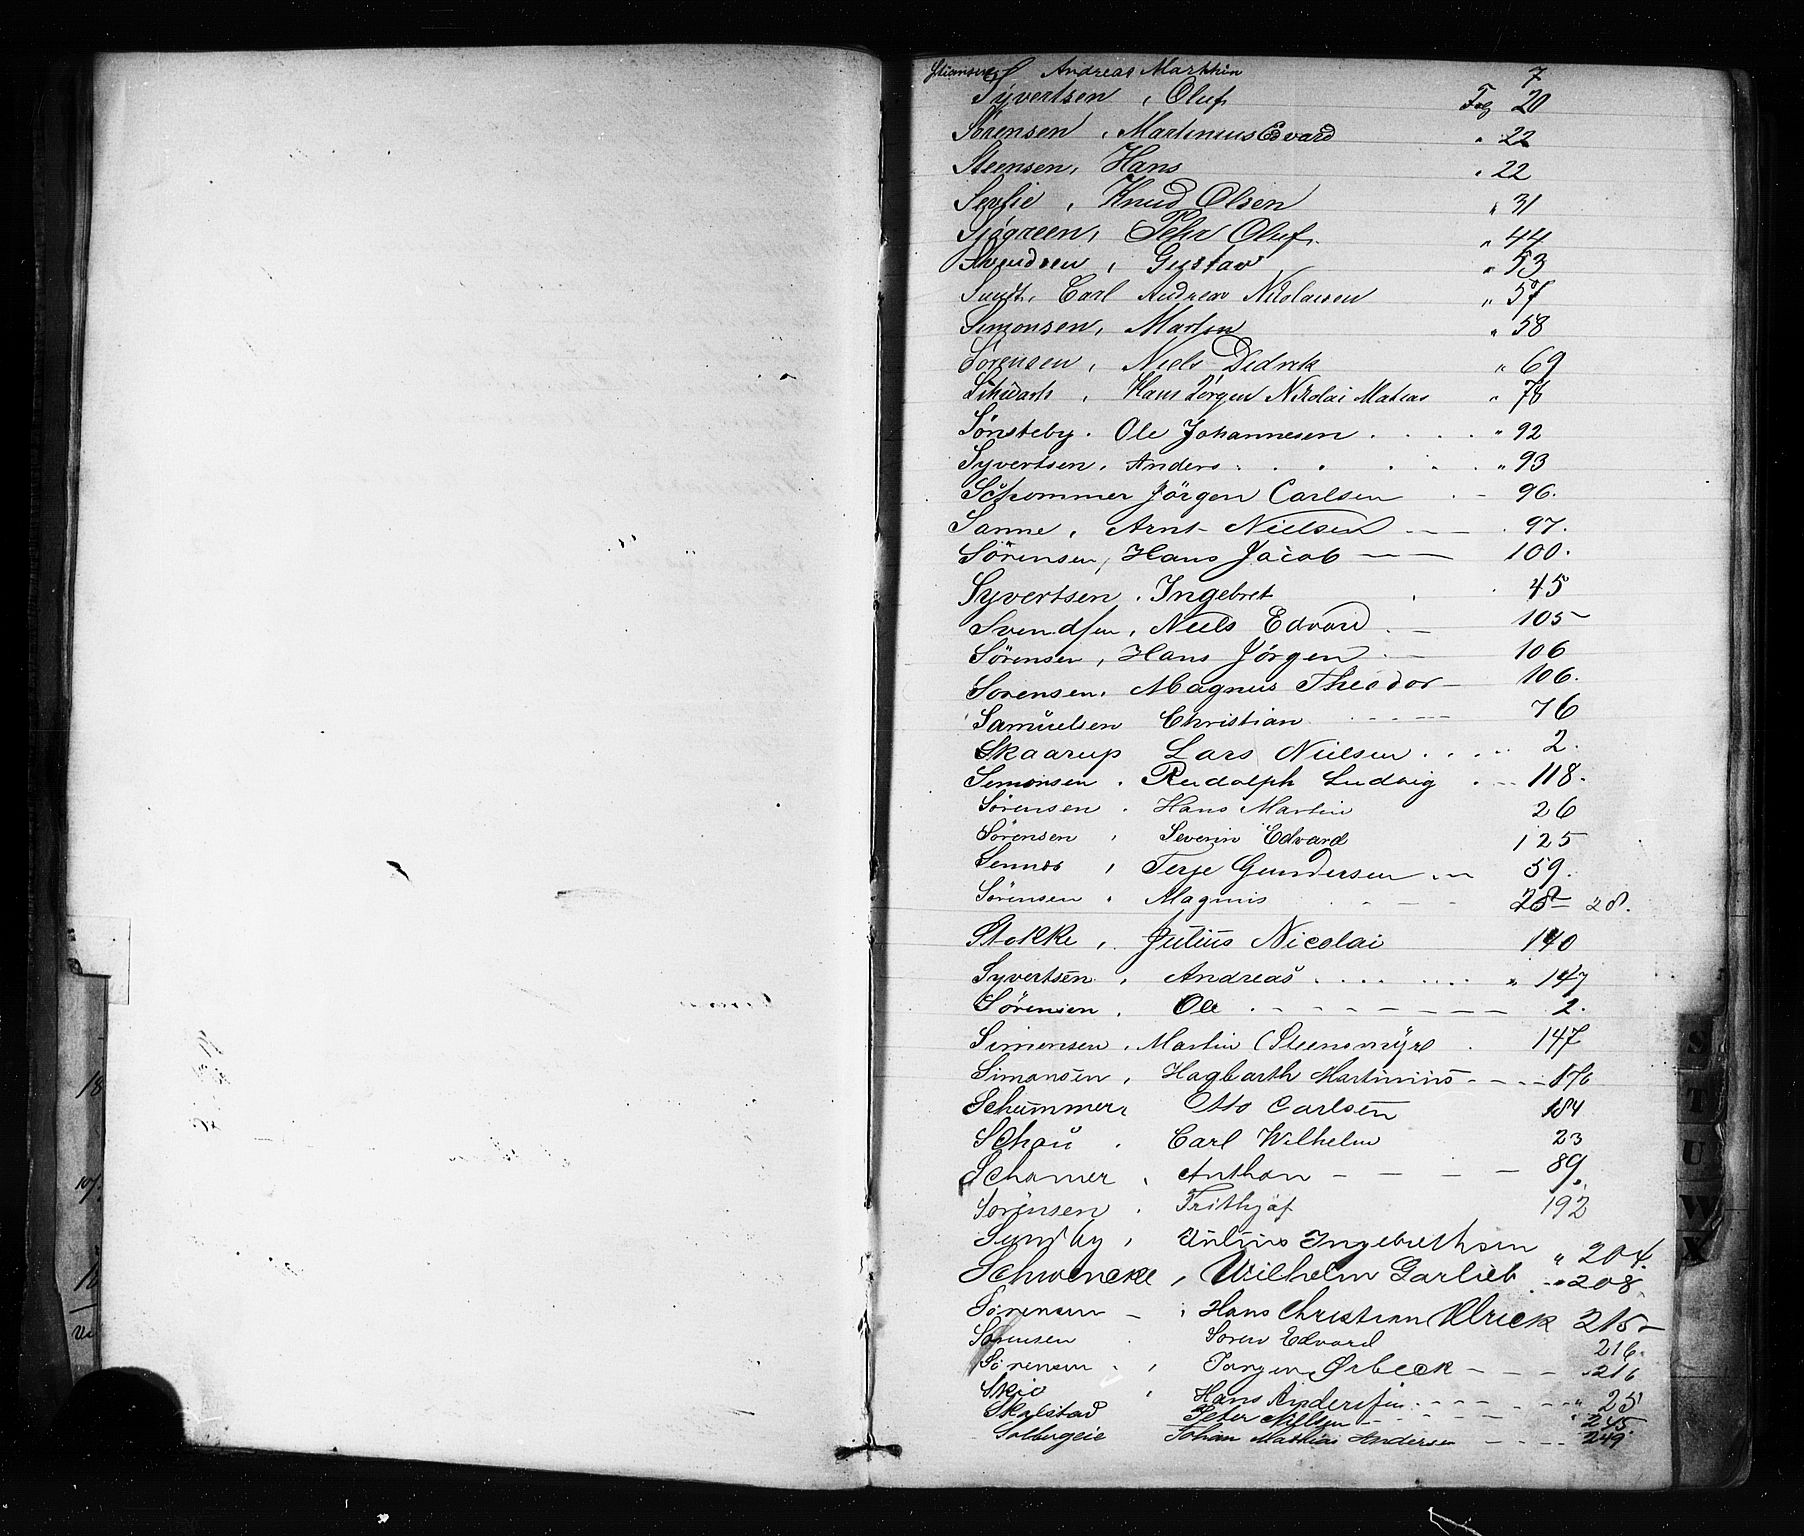 Andreas Martin 7
Syvertsen, Oluf Fol 20
Sörensen, Martinius Edvard " 22
Steensen, Hans " 22
Knud Olsen " 31
Sjögreen, Pehr Oluf. " 44
Svendsen, Gustav " 53
Sundt, Carl Andreas Nicolaisen " 57
Simonsen, Martin " 58
Sörensen, Niels Didrik " 69
Schwartz, Hans Jörgen Nikolai Matias " 78
Sönsteby. Ole Johannesen . . . . " 92
Syvertsen, Anders . . . . . " 93
Schommer Jörgen Carlsen . - 96.
Sanne, Arnt Nielsen - - . 97.
Sörensen, Hans Jacob - - 100.
Syvertsen, Ingebret 45
Svendsen, Niels Edvard . - 105
Sörensen, Hans Jörgen - 106
Sorensen, Magnus Theodor - 106.
Samuelsen Christian . . . . 76
Skaarup Lars Nielsen . . . . 2.
Simonsen, Rudolph Ludvig . - 118.
Sörensen, Hans Martin 26
Sörensen, Severin Edvard 125
Sennes, Terje Gundersen . - 59.
Sörensen, Magnus . . - - 28 28.
Stokke, Julius Nicolai 140
Syvertsen, Andreas . . . . . . . " 147
Sörensen, Ole - - - - - - - 2.
Simensen, Martin (Steensmyr) . 147
Simonsen, Hagbarth Martinius - - - 176
Schummer, Otto Carlsen 184
Schau, Carl Wilhelm 23
Schamer, Anthon - - - - 89.
Sorensen, Frithjof 192
Sundby, Julius Ingebrethsen " 204.
Schwencke, Wilhelm Garlieb " 208.
Sörensen - , Hans Christian Ulrick 215
Sörensen . Sören Edvard 216.
Sörensen . , Jörgen Ørbeck - - - 216
Skio , Hans Andersen . - - - - " 25
Skolstad Peter Nilsen - - - - - " 245
Solbugeie Johan Mathias Andersen - - - - 249.
S
T
U
W
X
18
107.